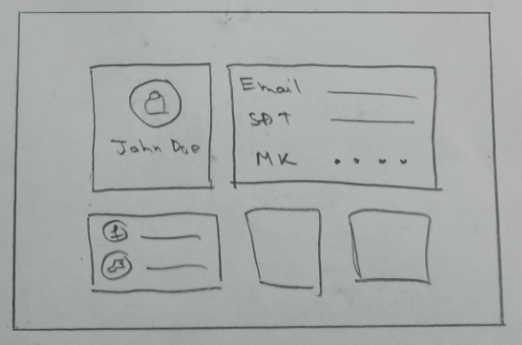 John Doe
Email
SĐT
MK